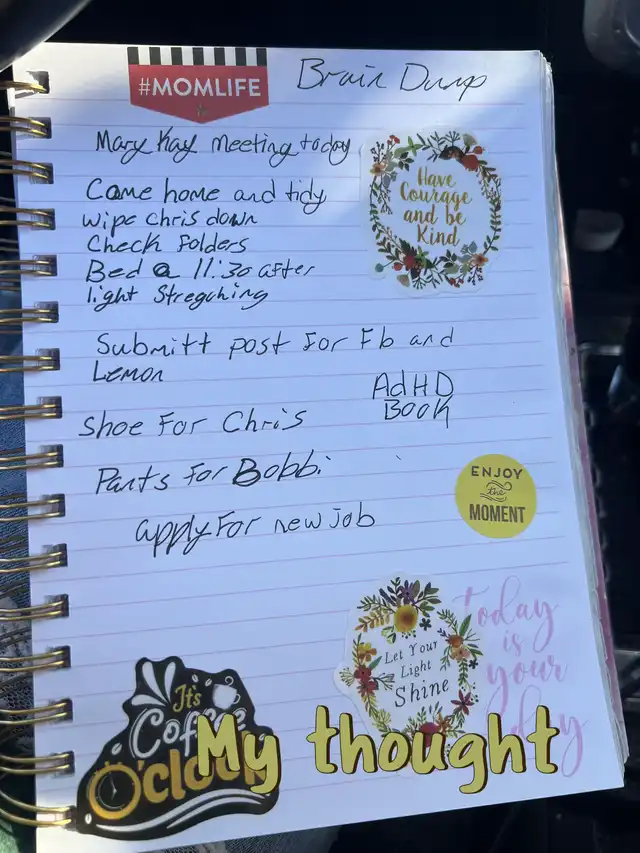 #MOMLIFE
Brain Dump
Mary Kay meeting today
Come home and tidy
wipe chris down
Check Folders
Bed @ 11:30 after
light Stregching
Have
Courage
and be
Kind
Submitt post for Fb and
Lemon
AdHD
BOOK
Shoe For Chris
Pants for Bobbi
apply For new job
ENJOY
the
MOMENT
Let Your
Light
Shine
today
is
your
day
It's
Coffee
O'clock
My thought